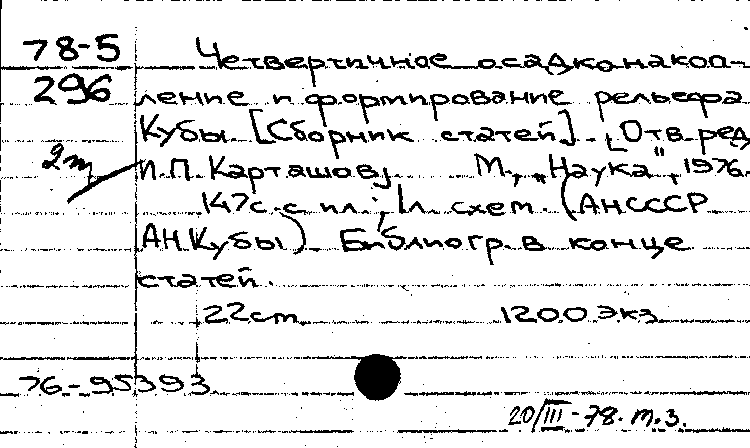 78-5 Четвертичное осадконакоп-
296 ление и формирование рельефа
Кубы. [Сборник статей]. [Отв. ред.
2т И.П. Карташов]. М., „Наука", 1976.
147 с. с ил.; 1 л. схем. (АН СССР
АН Кубы). Библиогр. в конце
статей.
22 cm 1200 экз
76-95393
20/III-78. т.3.